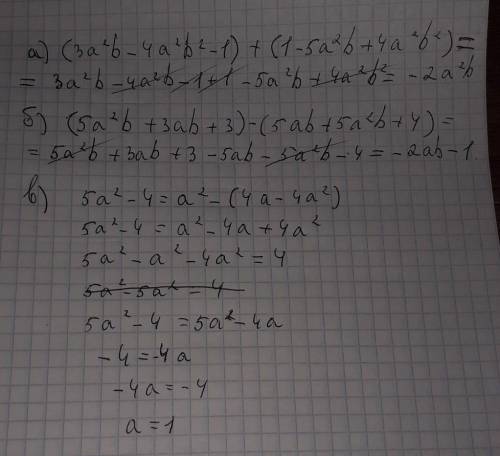 а) (3a²b - 4a²b² - 1) + (1 - 5a²b + 4a²b²) =
= 3a²b - 4a²b - 1 + 1 - 5a²b + 4a²b² = - 2a²b
б) (5a²b + 3ab + 3) - (5ab + 5a²b + 4) =
= 5a²b + 3ab + 3 - 5ab - 5a²b - 4 = - 2ab - 1.
в) 5a² - 4 = a² - (4a - 4a²)
5a² - 4 = a² - 4a + 4a²
5a² - a² - 4a² = 4
5a² - 5a² - 4
5a² - 4 = 5a² - 4a
- 4 = -4a
- 4a = - 4
a = 1